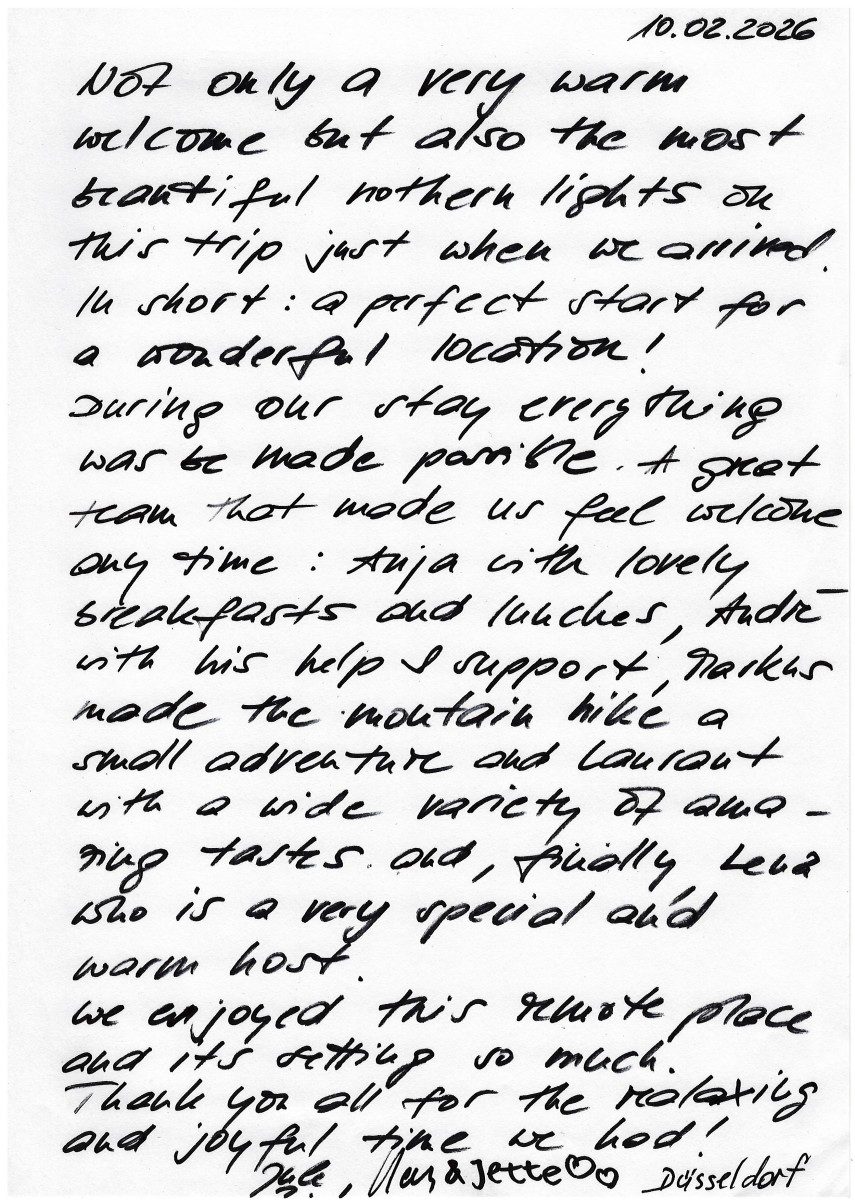 10.02.2026
Not only a very warm
welcome but also the most
beautiful nothern lights on
this trip just when we arrived.
In short: a perfect start for
a wonderful location!
During our stay everything
was be made possible. A great
team that made us feel welcome
any time: Anja with lovely
breakfasts and lunches, André
with his help & support, Markus
made the mountain hike a
small adventure and Laurant
with a wide variety of ama-
zing tastes and, finally Lena
who is a very special and
warm host.
We enjoyed this remote place
and its setting so much.
Thank you all for the realaxing
and joyful time we had!
& Jette♡♡ Düsseldorf